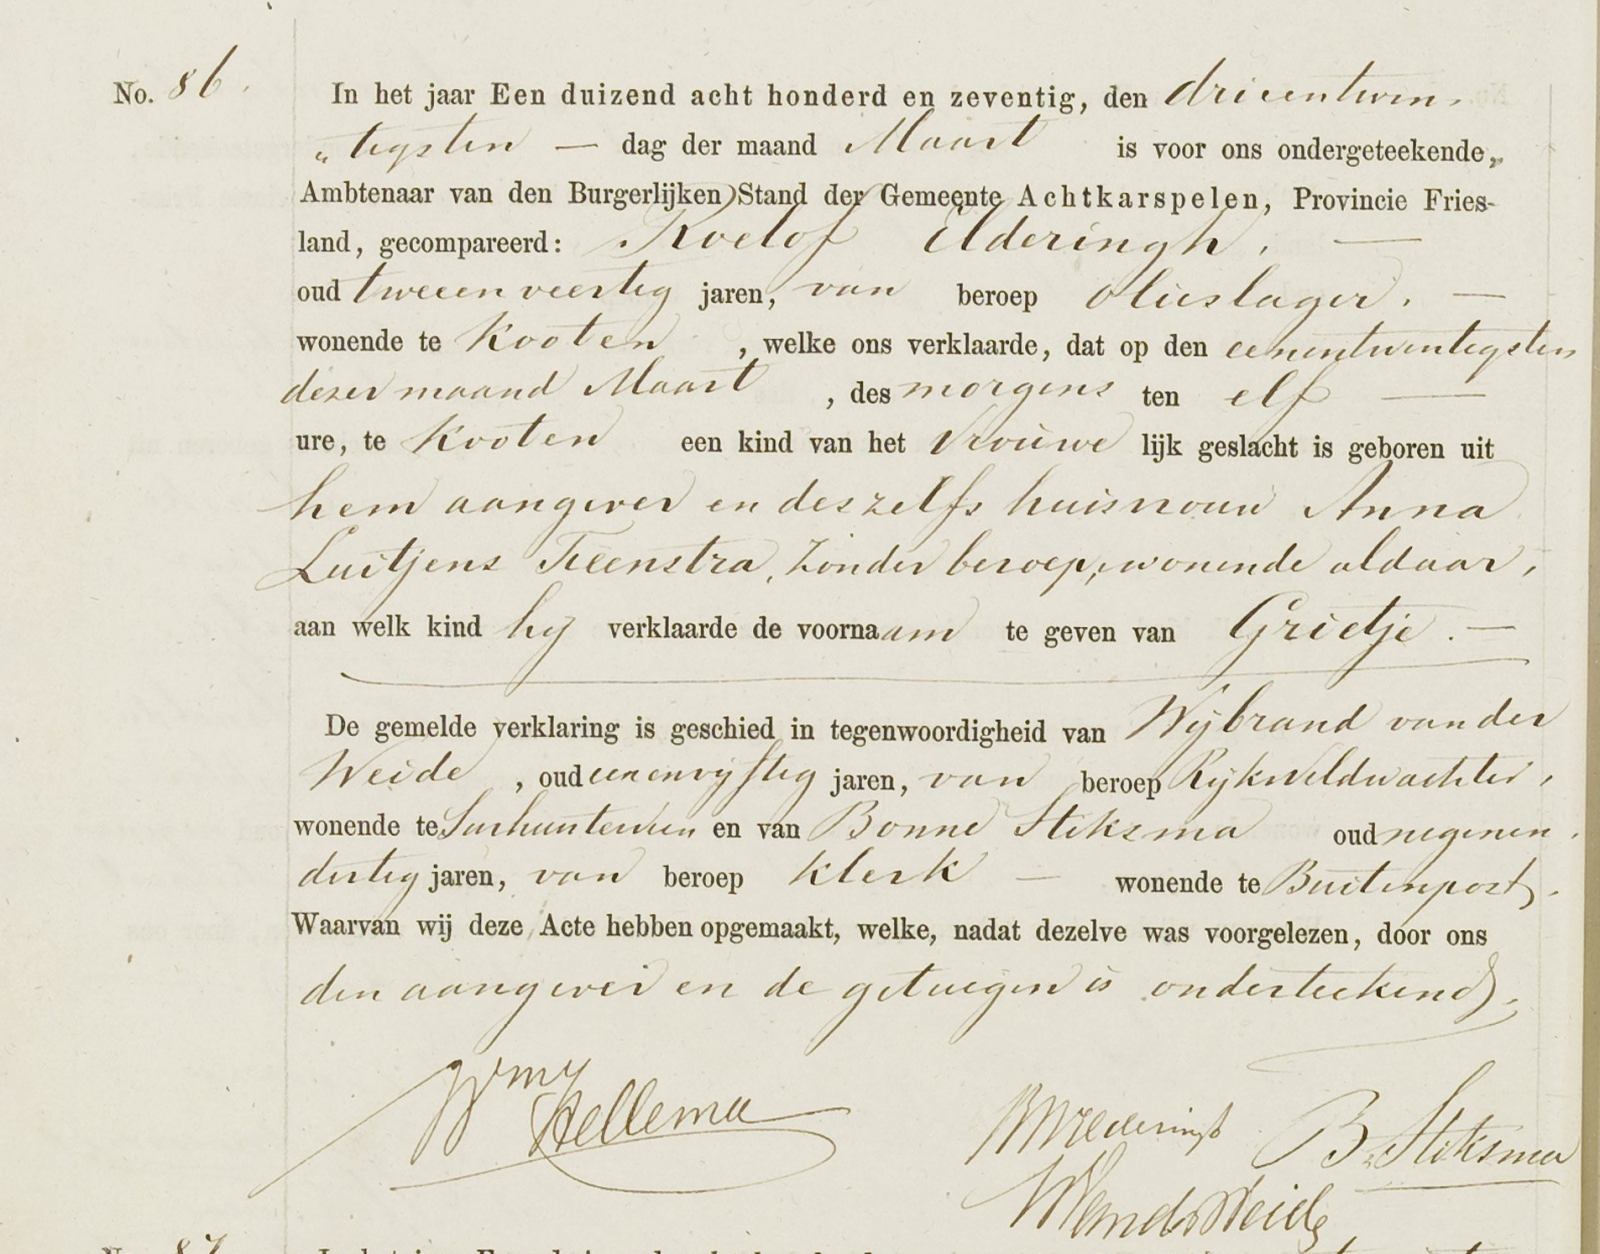 No. 86.
In het jaar Een duizend acht honderd en zeventig, den drieentwin-
„tigsten — dag der maand Maart is voor ons ondergeteekende,
Ambtenaar van den Burgerlijken Stand der Gemeente Achtkarspelen, Provincie Fries-
land, gecompareerd: Roelof Elderingh. —
oud tweeenveertig jaren, van beroep olieslager. —
wonende te Kooten, welke ons verklaarde, dat op den eenentwintigsten
dezer maand Maart, des morgens ten elf —
ure, te Kooten een kind van het vrouwelijk geslacht is geboren uit
hem aangever en deszelfs huisvrouw Anna
Luitjens Teenstra, zonder beroep, wonende aldaar,
aan welk kind hij verklaarde de voornaam te geven van Grietje. —
De gemelde verklaring is geschied in tegenwoordigheid van Wijbrand van der
Weide, oud eenenvijftig jaren, van beroep Rijksveldwachter,
wonende te Surhuisterveen en van Bonne Stiksma oud negenen
dertig jaren, van beroep klerk — wonende te Buitenpost.
Waarvan wij deze Acte hebben opgemaakt, welke, nadat dezelve was voorgelezen, door ons
den aangever en de getuigen is onderteekend.
Hellema
B. Stiksma
WvanderWeide
87